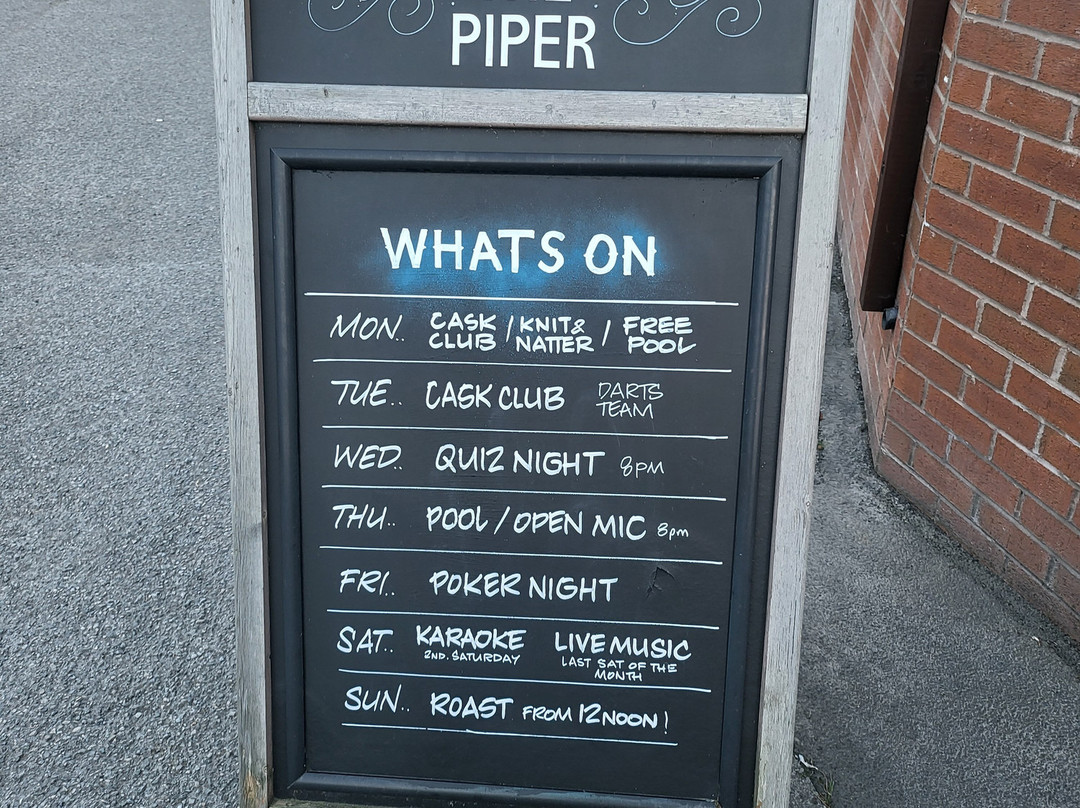 PIPER
WHATS ON
MON.. CASK CLUB / KNIT & NATTER / FREE POOL
TUE.. CASK CLUB DARTS TEAM
WED.. QUIZ NIGHT 8PM
THU.. POOL / OPEN MIC 8pm
FRI.. POKER NIGHT
SAT.. KARAOKE 2ND. SATURDAY LIVE MUSIC LAST SAT OF THE MONTH
SUN.. ROAST FROM 12 NOON!